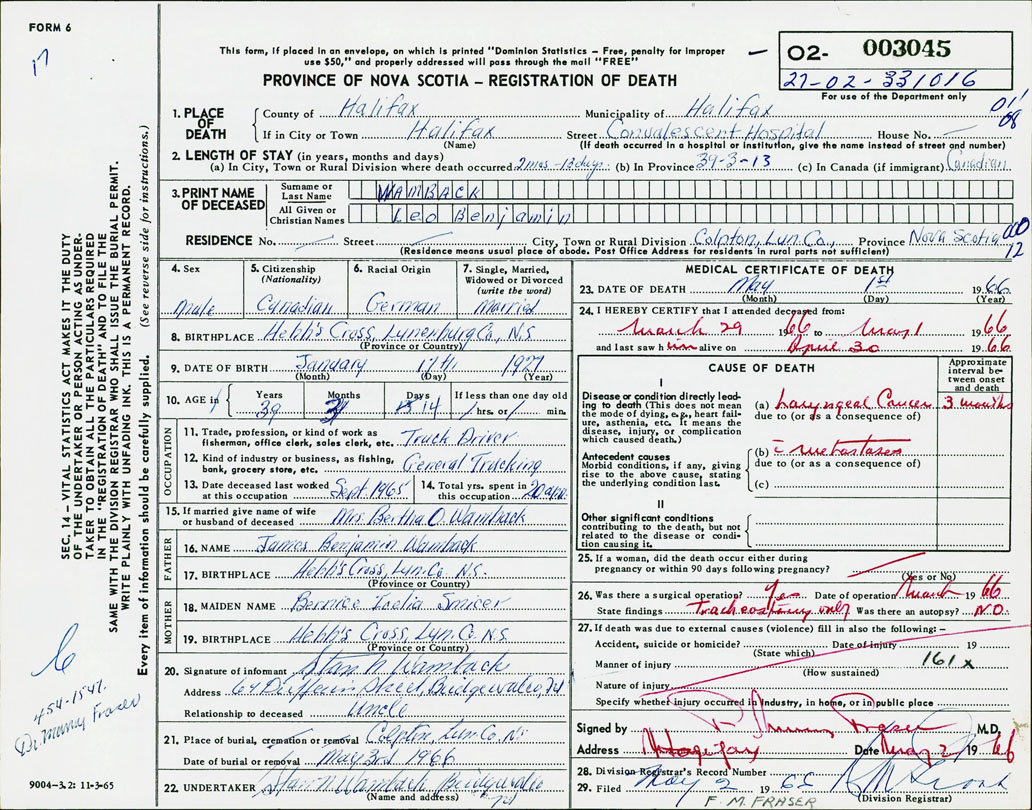 FORM 6
17
This form, if placed in an envelope, on which is printed "Dominion Statistics – Free, penalty for improper
use $50," and properly addressed will pass through the mail "FREE"
PROVINCE OF NOVA SCOTIA – REGISTRATION OF DEATH
02- 003045
27-02-331016
For use of the Department only
011
08
1. PLACE OF DEATH
County of Halifax Municipality of Halifax
If in City or Town Halifax Street Convalescent Hospital House No. —
(Name) (If death occurred in a hospital or institution, give the name instead of street and number)
2. LENGTH OF STAY (in years, months and days)
(a) In City, Town or Rural Division where death occurred 2 mos - 13 days (b) In Province 39-3-13 (c) In Canada (if immigrant) Canadian
3. PRINT NAME OF DECEASED
Surname or Last Name WAMBACK
All Given or Christian Names Leo Benjamin
000
12
RESIDENCE No. — Street — City, Town or Rural Division Colpton, Lun. Co., Province Nova Scotia
(Residence means usual place of abode. Post Office Address for residents in rural parts not sufficient)
4. Sex
Male
5. Citizenship
(Nationality)
Canadian
6. Racial Origin
German
7. Single, Married,
Widowed or Divorced
(write the word)
Married
8. BIRTHPLACE Hebb's Cross, Lunenburg Co., N.S.
(Province or Country)
9. DATE OF BIRTH January 17th 1927
(Month) (Day) (Year)
10. AGE in Years Months Days If less than one day old
39 3 14 hrs. or min.
OCCUPATION
11. Trade, profession, or kind of work as
fisherman, office clerk, sales clerk, etc. Truck Driver
12. Kind of industry or business, as fishing,
bank, grocery store, etc. General Trucking
13. Date deceased last worked
at this occupation Sept. 1965
14. Total yrs. spent in
this occupation 20
15. If married give name of wife
or husband of deceased Mrs Bertha O. Wamback
FATHER
16. NAME James Benjamin Wamback
17. BIRTHPLACE Hebb's Cross, Lun. Co. N.S.
(Province or Country)
MOTHER
18. MAIDEN NAME Bernice
19. BIRTHPLACE Hebb's Cross, Lun. Co. N.S.
(Province or Country)
20. Signature of informant Stan N. Wamback
Address 64 Dufferin Street, Bridgewater,
Relationship to deceased Uncle
21. Place of burial, cremation or removal Colpton, Lun. Co. N.S.
Date of burial or removal May 3rd 1966
22. UNDERTAKER Stan N. Wamback Bridgewater
(Name and address)
MEDICAL CERTIFICATE OF DEATH
23. DATE OF DEATH May 1st 1966
(Month) (Day) (Year)
24. I HEREBY CERTIFY that I attended deceased from:
March 29 1966 to May 1 1966
and last saw him alive on April 30 1966
CAUSE OF DEATH
Approximate
interval be-
tween onset
and death
I
Disease or condition directly lead-
ing to death (This does not mean
the mode of dying, e.g., heart fail-
ure, asthenia, etc. It means the
disease, injury, or complication
which caused death.)
(a) Laryngeal Cancer 3 months
due to (or as a consequence of)
Antecedent causes
Morbid conditions, if any, giving
rise to the above cause, stating
the underlying condition last.
(b) c̄ metastases
due to (or as a consequence of)
(c)
II
Other significant conditions
contributing to the death, but not
related to the disease or condi-
tion causing it.
25. If a woman, did the death occur either during
pregnancy or within 90 days following pregnancy?
(Yes or No)
26. Was there a surgical operation? Yes Date of operation March 1966
State findings Tracheostomy only Was there an autopsy? NO
27. If death was due to external causes (violence) fill in also the following: –
Accident, suicide or homicide? Date of injury 19
(State which)
Manner of injury 161x
(How sustained)
Nature of injury
Specify whether injury occurred in industry, in home, or in public place
Signed by M.D.
Address Halifax Date May 2 1966
28. Division Registrar's Record Number
29. Filed May 2 1965
(Division Registrar)
F. M. FRASER
SEC. 14 – VITAL STATISTICS ACT MAKES IT THE DUTY
OF THE UNDERTAKER OR PERSON ACTING AS UNDER-
TAKER TO OBTAIN ALL THE PARTICULARS REQUIRED
IN THE "REGISTRATION OF DEATH" AND TO FILE THE
SAME WITH THE DIVISION REGISTRAR WHO SHALL ISSUE THE BURIAL PERMIT.
WRITE PLAINLY WITH UNFADING INK. THIS IS A PERMANENT RECORD.
Every item of information should be carefully supplied. (See reverse side for instructions.)
6
454-1547.
Dr. Murray Fraser
9004-3.2: 11-3-65